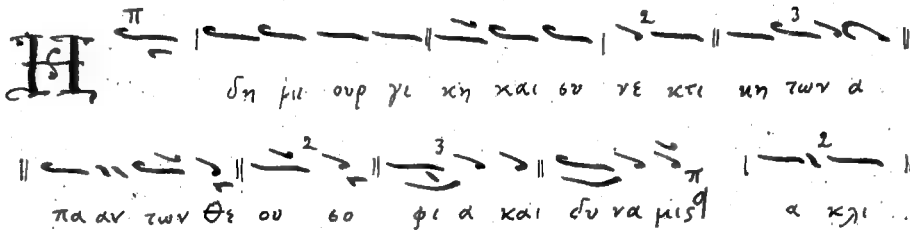 Η δη μι ουρ γι κη και συ νε κτι κη των α
πα αν των Θε ου σο φι α και δυ να μις α κλι